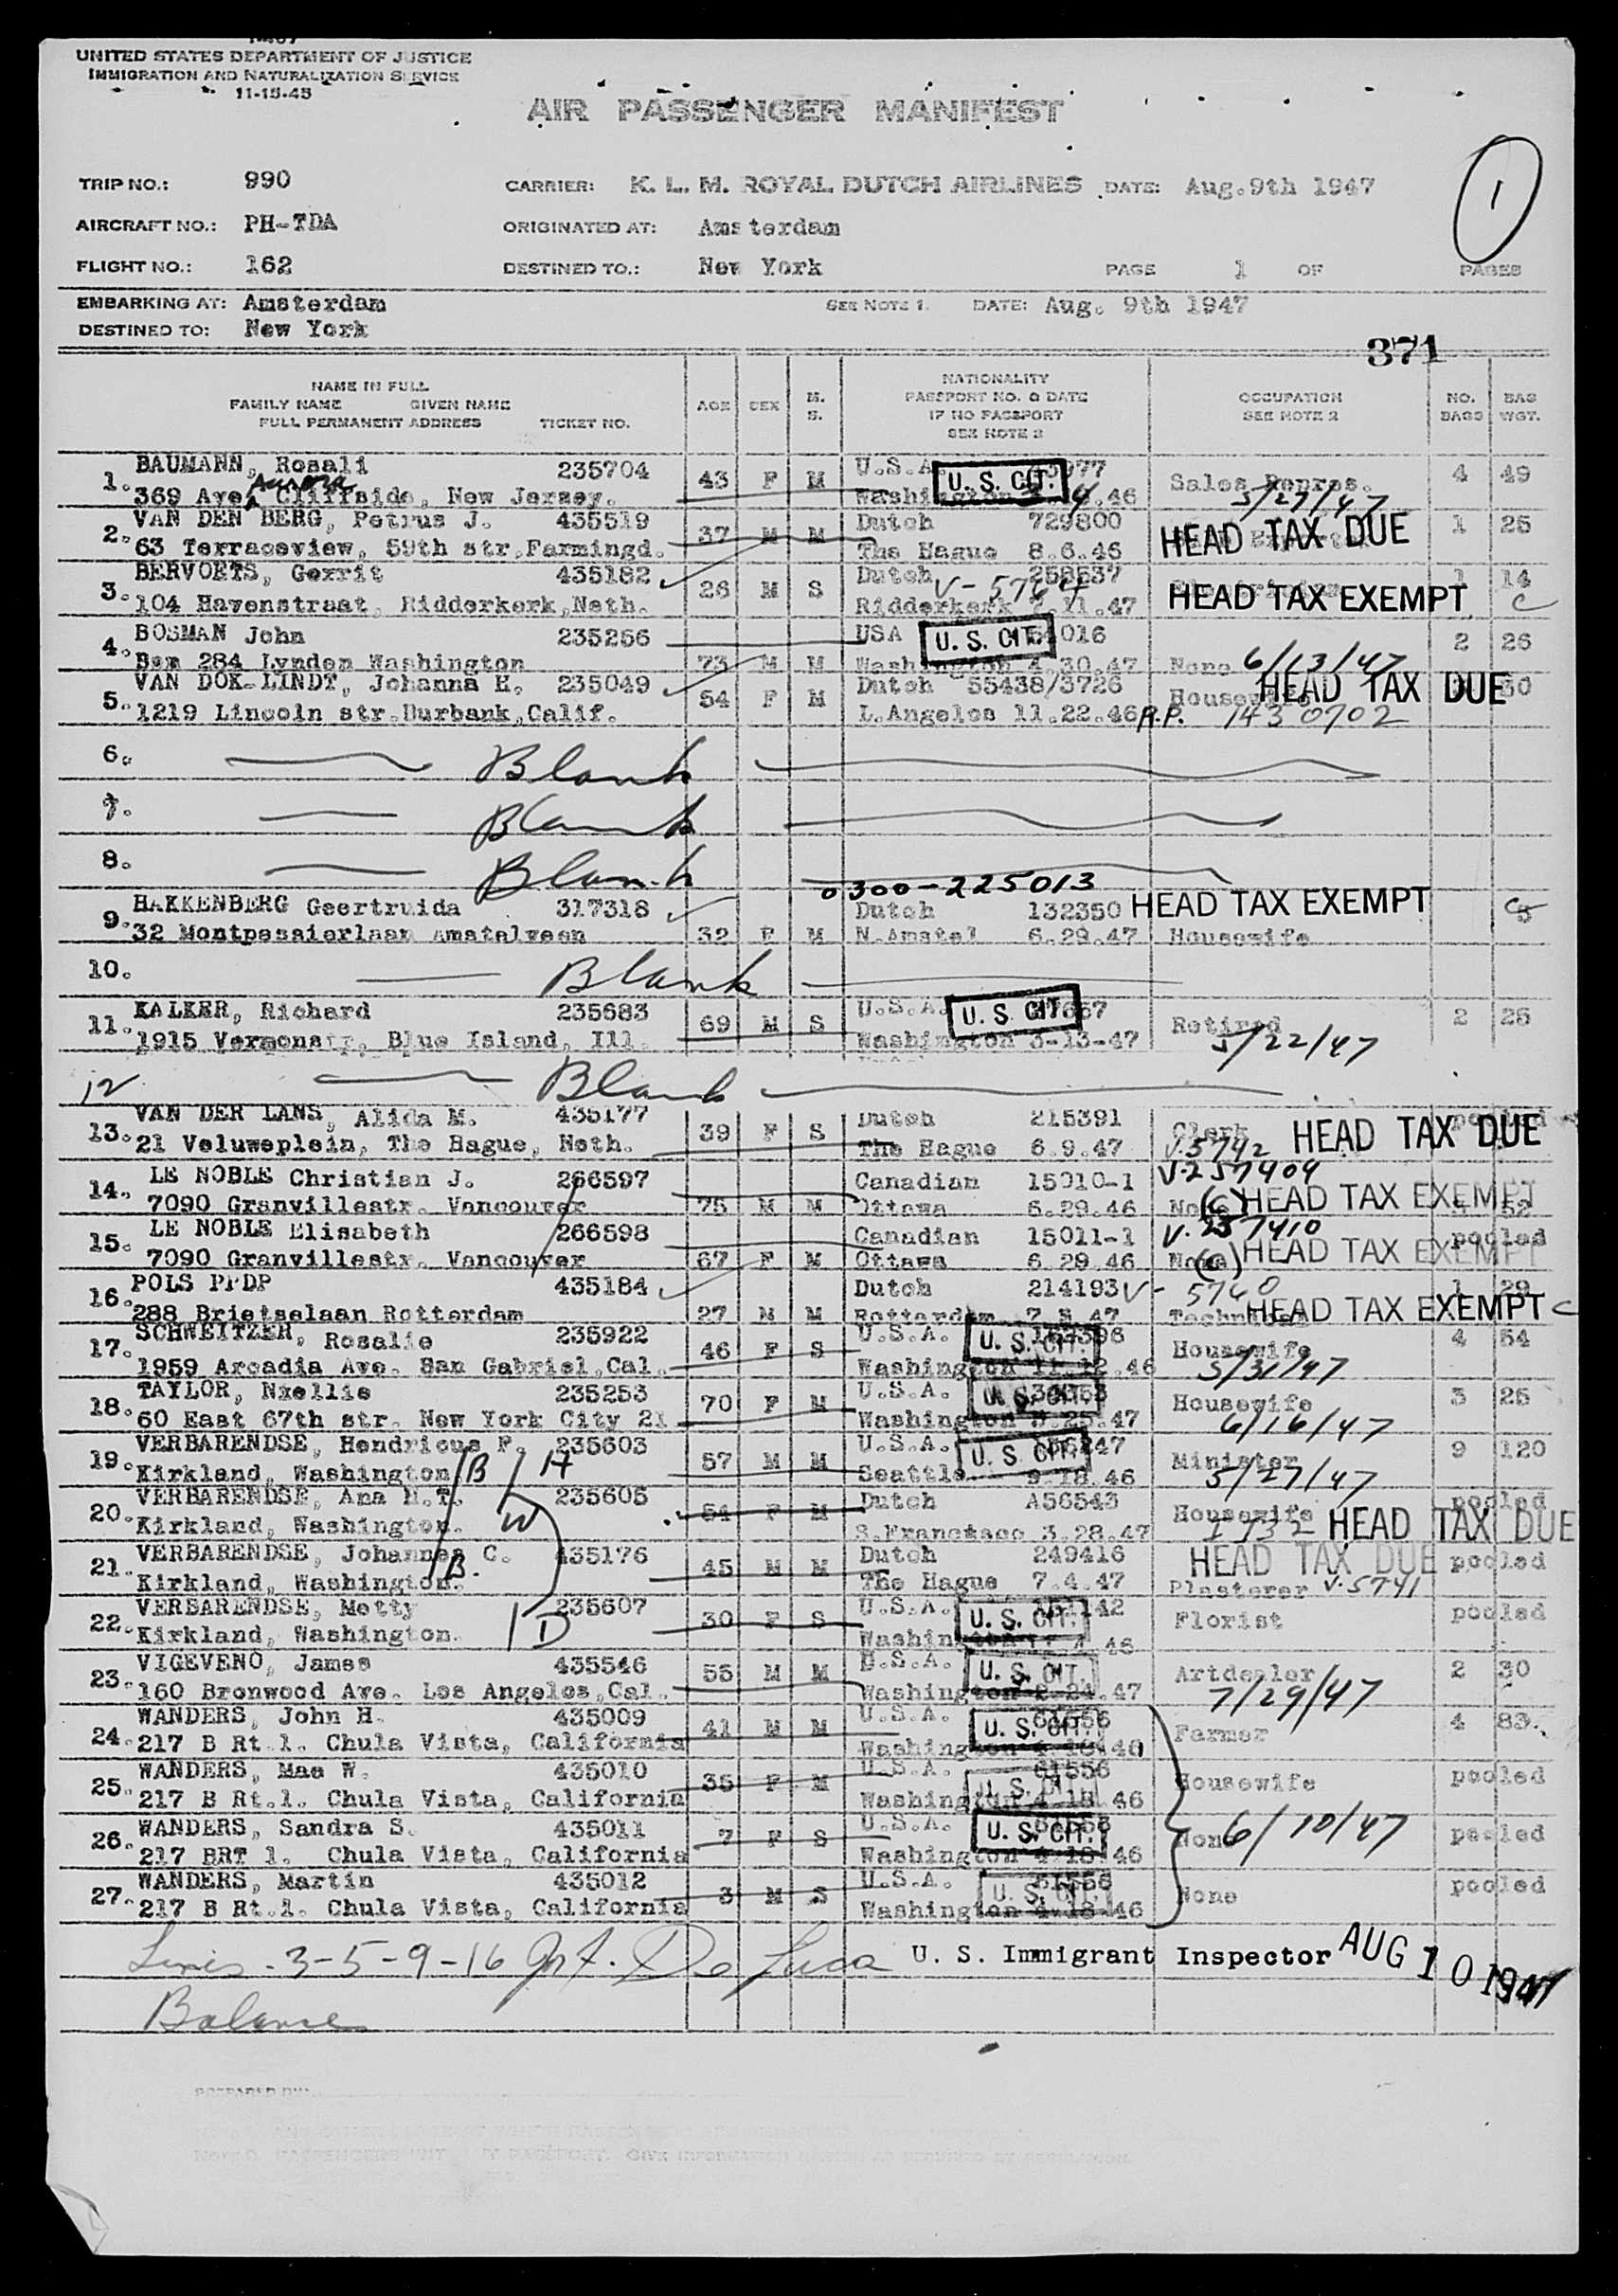 UNITED STATES DEPARTMENT OF JUSTICE
IMMIGRATION AND NATURALIZATION SERVICE
11-15-45
AIR PASSENGER MANIFEST
1
TRIP NO.: 990 CARRIER: K. L. M. ROYAL DUTCH AIRLINES DATE: Aug.9th 1947
AIRCRAFT NO.: PH-TDA ORIGINATED AT: Amsterdam
FLIGHT NO.: 162 DESTINED TO.: New York PAGE 1 OF PAGES
EMBARKING AT: Amsterdam SEE NOTE 1. DATE: Aug. 9th 1947
DESTINED TO: New York
371
NAME IN FULL
FAMILY NAME GIVEN NAME
FULL PERMANENT ADDRESS TICKET NO. AGE SEX M. S.
NATIONALITY
PASSPORT NO. & DATE
IF NO PASSPORT
SEE NOTE 3
OCCUPATION
SEE NOTE 2
NO. BAGS BAG WGT.
1. BAUMANN, Rosali 235704 43 F M U.S.A. U. S. CIT. 4 49
369 Ave. Aurora Cliffside, New Jersey. Washington .46 Sales Repres. 5/27/47
2. VAN DEN BERG, Petrus J. 435519 37 M M Dutch 729800 HEAD TAX DUE 1 25
63 Terraceview, 59th str.Farmingd. The Hague 8.6.46
3. BERVOETS, Gerrit 435182 26 M S Dutch 258537 V-5764 1 14
104 Havenstraat, Ridderkerk,Neth. Ridderkerk .11.47 HEAD TAX EXEMPT C
4. BOSMAN John 235266 USA U. S. CIT 016 2 26
Box 284 Lynden Washington 73 M M Washington 4.30.47 None 6/13/47
5. VAN DOK-LINDT, Johanna H. 235049 54 F M Dutch 55438/3726 Housewife HEAD TAX DUE 30
1219 Lincoln str.Burbank,Calif. L.Angelos 11.22.46 R.P. 1430702
6. Blank
7. Blank
8. Blank
0300-225013
9. HAKKENBERG Geertruida 317318 Dutch 132350 HEAD TAX EXEMPT
32 Montpessierlaan Amstelveen 32 F M N.Amstel 6.29.47 Housewife
10. Blank
11. KALKER, Richard 235683 69 M S U.S.A. U. S CIT 667 Retired 2 26
1915 Vermonstr, Blue Island, Ill. Washington 3-13-47 5/22/47
12 Blank
13. VAN DER LANS, Alida M. 435177 39 F S Dutch 215391 Clerk pooled
21 Veluweplein, The Hague, Neth. The Hague 6.9.47 V.5742 HEAD TAX DUE
14. LE NOBLE Christian J. 266597 Canadian 15010-1 V-257409
7090 Granvillestr. Vancouver 75 M M Ottawa 6.29.46 None (C) HEAD TAX EXEMPT 52
15. LE NOBLE Elisabeth 266598 Canadian 15011-1 V-257410 pooled
7090 Granvillestr. Vancouver 67 F M Ottawa 6.29.46 None (C) HEAD TAX EXEMPT
16. POLS PFDP 435184 Dutch 214193 V-5740 1 29
288 Brietselaan Rotterdam 27 M M Rotterdam 7.8.47 HEAD TAX EXEMPT C
17. SCHWEITZER, Rosalie 235922 46 F S U.S.A. U. S. CIT. Housewife 4 54
1959 Arcadia Ave. San Gabriel,Cal. Washington 11.12.46 5/31/47
18. TAYLOR, Nxellie 235253 70 F M U.S.A. U. S. CIT. Housewife 3 25
60 East 67th str. New York City 21 Washington .25.47 6/16/47
19. VERBARENDSE, Hendricus P. 235603 57 M M U.S.A. U. S. CIT. 247 Minister 9 120
Kirkland, Washington B H Seattle 9.18.46 5/27/47
20. VERBARENDSE, Ana H.T. 235605 54 F M Dutch A56543 Housewife pooled
Kirkland, Washington. W S.Francisco 3.28.47 HEAD TAX DUE
21. VERBARENDSE, Johannes C. 435176 45 M M Dutch 249416 HEAD TAX DUE pooled
Kirkland, Washington. B. The Hague 7.4.47 Plasterer V.5741
22. VERBARENDSE, Metty 235607 30 F S U.S.A. U. S. CIT. 142 Florist pooled
Kirkland, Washington. D Washington .46
23. VIGEVENO, James 435546 55 M M U.S.A. U. S. CIT. Artdealer 2 30
160 Bronwood Ave. Los Angelos,Cal. Washington 2.24.47 7/29/47
24. WANDERS, John H. 435009 41 M M U.S.A. 61556 U. S. CIT. Farmer 4 83.
217 B Rt.1. Chula Vista, California Washington 4.18.46
25. WANDERS, Mae W. 435010 35 F M U.S.A. 61556 U. S. CIT. Housewife pooled
217 B Rt.1. Chula Vista, California Washington 4.18.46
26. WANDERS, Sandra S. 435011 7 F S U.S.A. 61556 U. S. CIT. None 6/10/47 pooled
217 BRT 1. Chula Vista, California Washington 4.18.46
27. WANDERS, Martin 435012 3 M S U.S.A. 61556 U. S. CIT. None pooled
217 B Rt.1. Chula Vista, California Washington 4.18.46
Lines - 3-5-9-16 De Luca U. S. Immigrant Inspector AUG 10 1947
Balance
PREPARED BY: